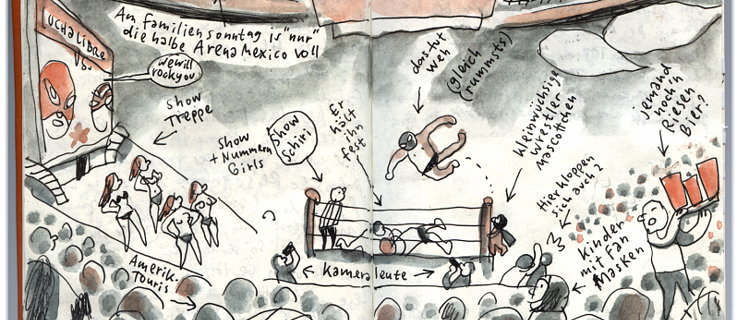 Am Familiensonntag is "nur"
die halbe Arena Mexico voll
LUCHA LIBRE
we will
rock you
Show
Treppe
Show
+ Nummern
Girls
Show
Schiri
Er
hält
ihn
fest
das tut
weh
(gleich
rummsts)
Kleinwüchsige
wrestler als
Mascottchen
Hier kloppen
sich auch
jemand
noch'n
Riesen
Bier?
Kinder
mit Fan
Masken
← Kameraleute →
Amerik.
Touris